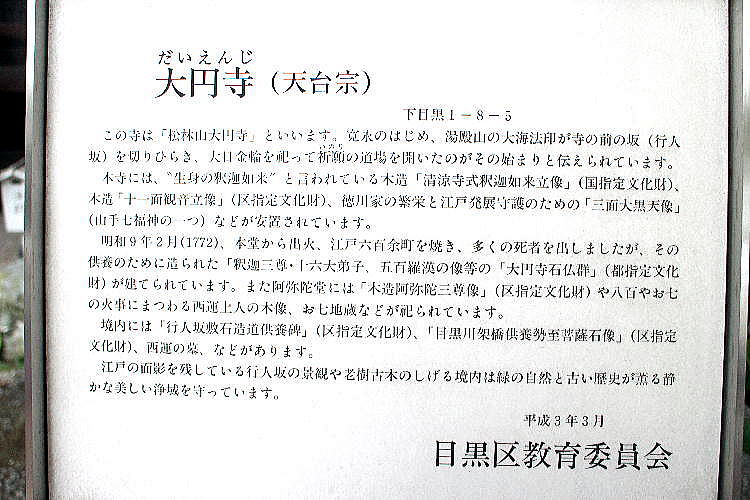 だいえんじ
大円寺（天台宗）
下目黒1－8－5
この寺は「松林山大円寺」といいます。寛永のはじめ、湯殿山の大海法印が寺の前の坂（行人
坂）を切りひらき、大日金輪を祀って祈願の道場を開いたのがその始まりと伝えられています。
本寺には、"生身の釈迦如来"と言われている木造「清涼寺式釈迦如来立像」（国指定文化財）、
木造「十一面観音立像」（区指定文化財）、徳川家の繁栄と江戸発展守護のための「三面大黒天像」
（山手七福神の一つ）などが安置されています。
明和9年2月(1772)、本堂から出火、江戸六百余町を焼き、多くの死者を出しましたが、その
供養のために造られた「釈迦三尊・十六大弟子、五百羅漢の像等の「大円寺石仏群」（都指定文化
財）が建てられています。また阿弥陀堂には「木造阿弥陀三尊像」（区指定文化財）や八百やお七
の火事にまつわる西運上人の木像、お七地蔵などが祀られています。
境内には「行人坂敷石造道供養碑」（区指定文化財）、「目黒川架橋供養勢至菩薩石像」（区指定
文化財）、西運の墓、などがあります。
江戸の面影を残している行人坂の景観や老樹古木のしげる境内は緑の自然と古い歴史が薫る静
かな美しい浄域を守っています。
平成3年3月
目黒区教育委員会